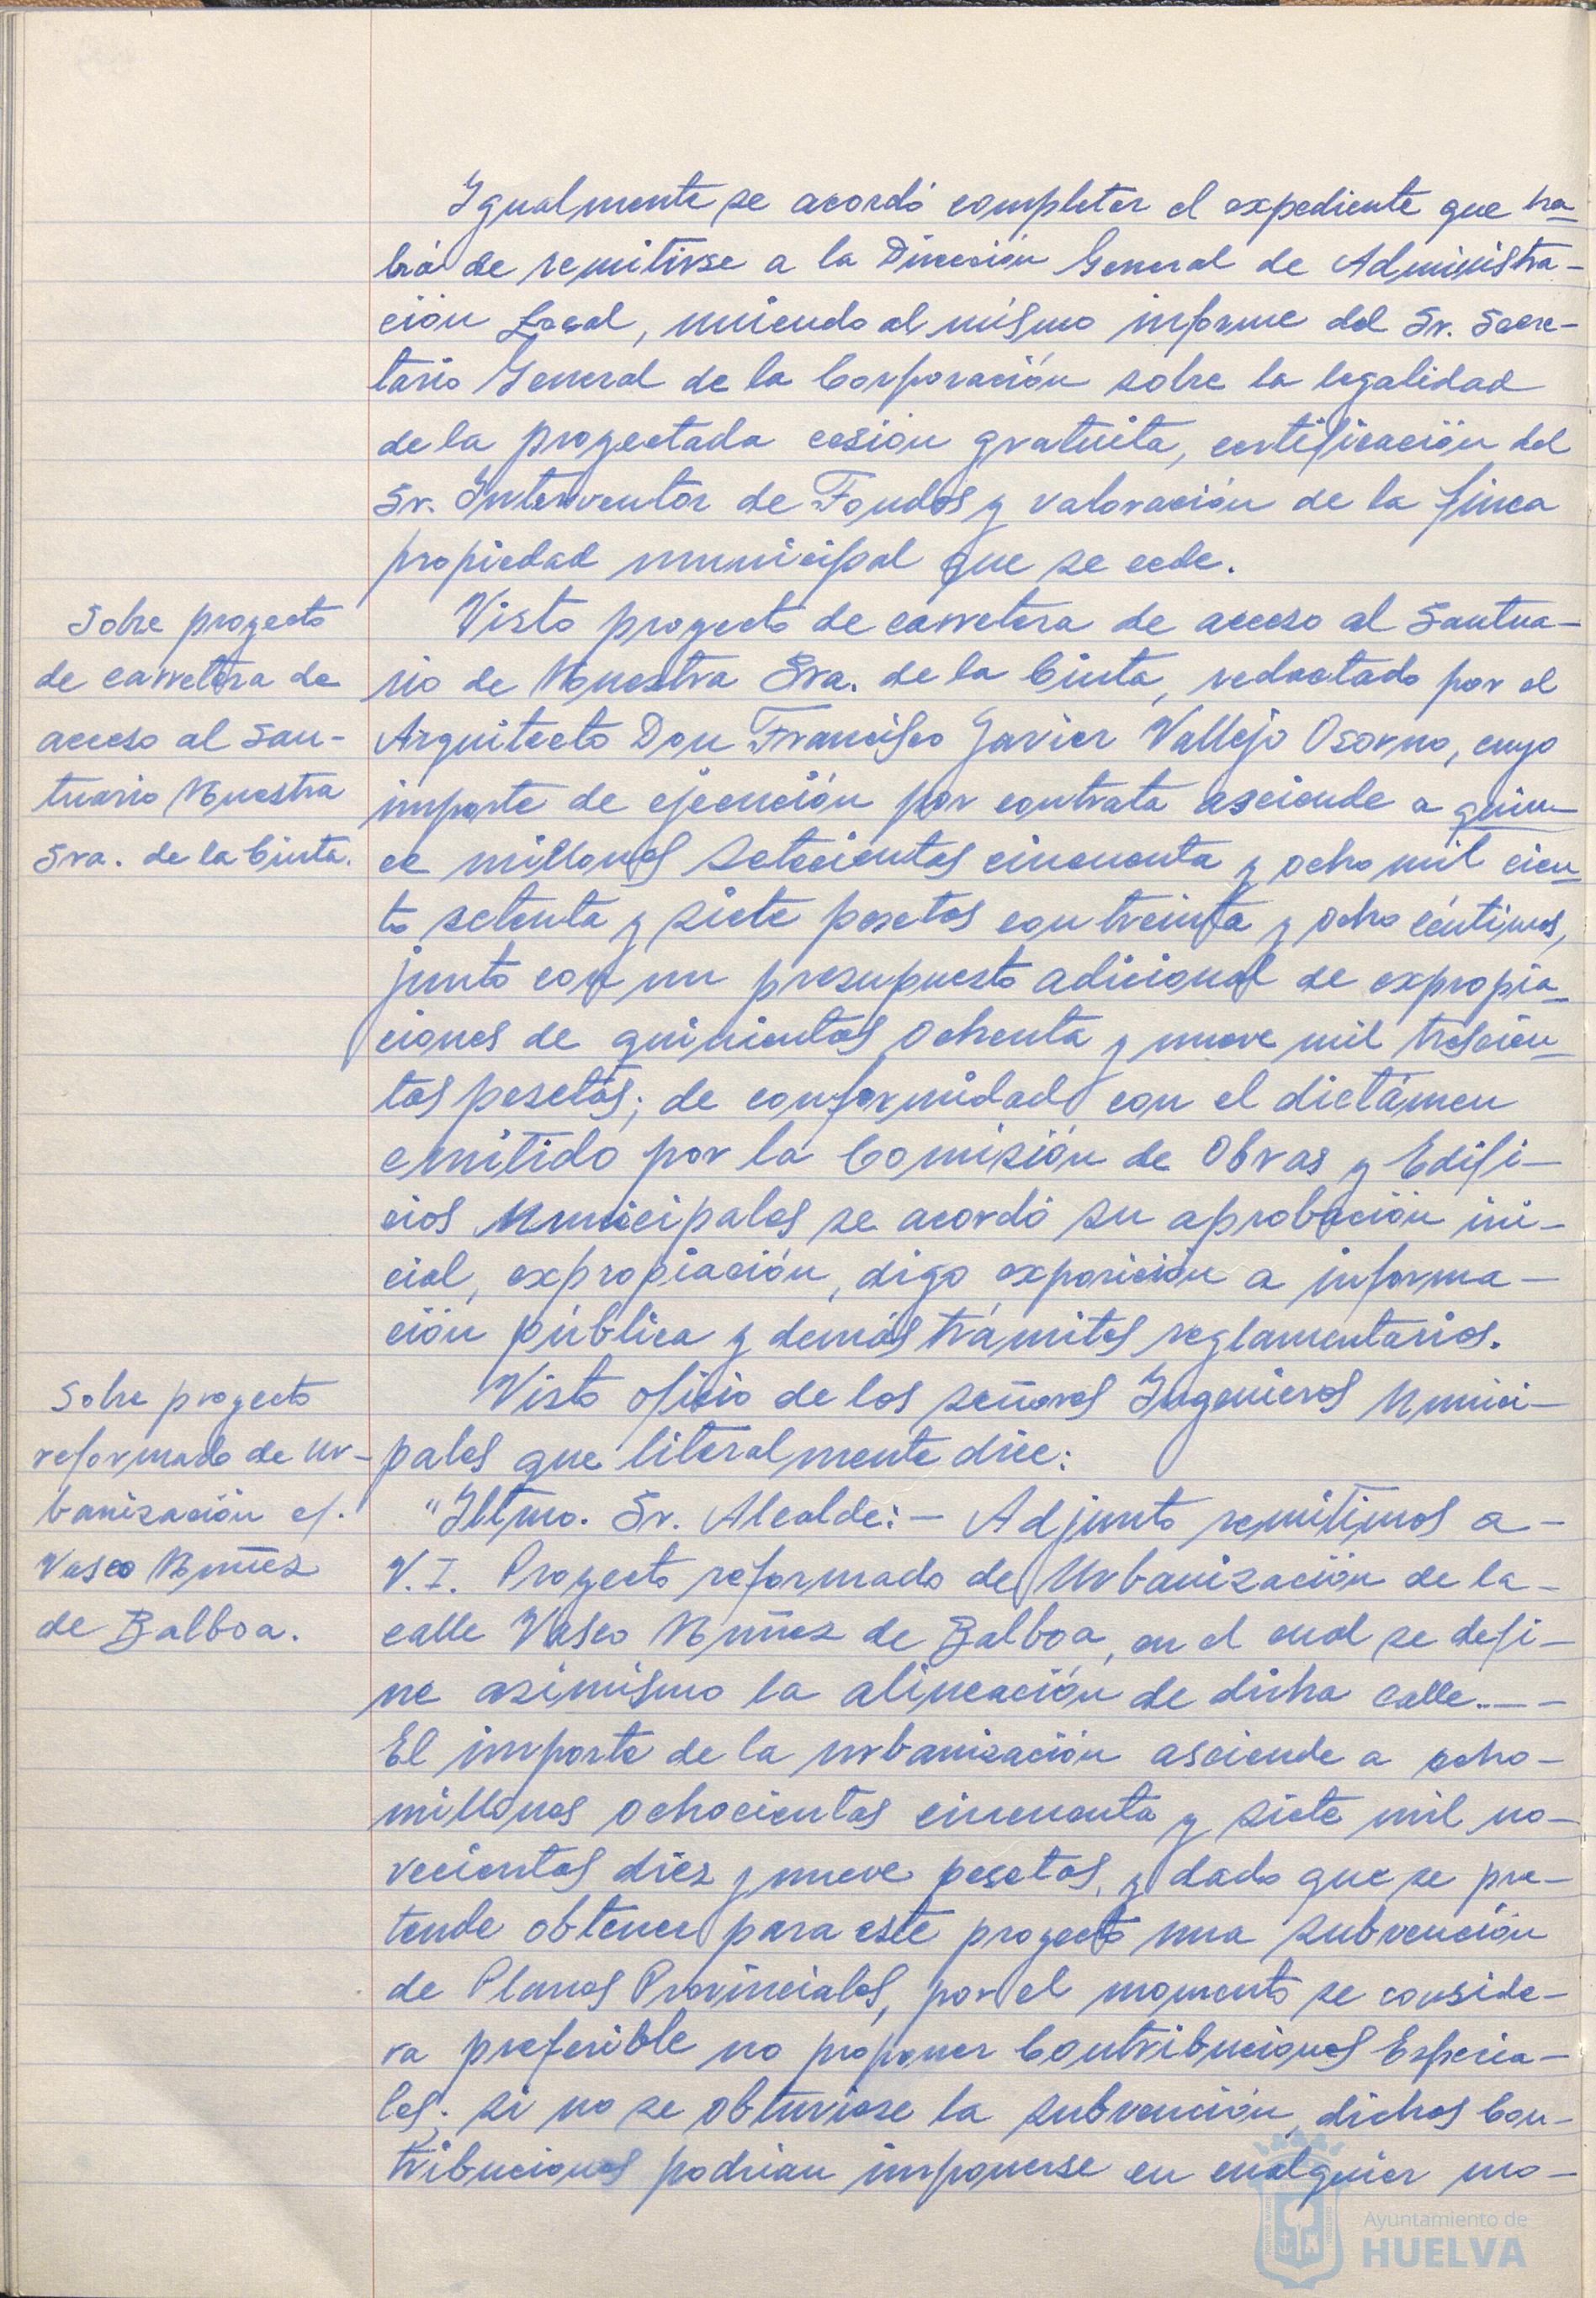 Igualmente se acordó completar el expediente que ha-
brá de remitirse a la Dirección General de Administra-
ción Local, uniendo al mismo informe del Sr. Secre-
tario General de la Corporación sobre la legalidad
de la proyectada cesión gratuita, certificación del
Sr. Interventor de Fondos y valoración de la finca
propiedad municipal que se cede.
Sobre proyecto
de carretera de
acceso al San-
tuario Nuestra
Sra. de la Cinta.
Visto proyecto de carretera de acceso al Santua-
rio de Nuestra Sra. de la Cinta, redactado por el
Arquitecto Don Francisco Javier Vallejo Osorno, cuyo
importe de ejecución por contrata asciende a quin-
ce millones setecientas cincuenta y ocho mil cien-
to setenta y siete pesetas con treinta y ocho céntimos,
junto con un presupuesto adicional de expropia-
ciones de quinientas ochenta y nueve mil trescien-
tas pesetas; de conformidad con el dictámen
emitido por la Comisión de Obras y Edifi-
cios Municipales se acordó su aprobación ini-
cial, expropiación, digo, exposición a informa-
ción pública y demás trámites reglamentarios.
Sobre proyecto
reformado de Ur-
banización c/.
Vasco Nuñez
de Balboa.
Visto oficio de los señores Ingenieros Munici-
pales que literalmente dice:
"Iltmo. Sr. Alcalde:- Adjunto remitimos a-
V.I. Proyecto reformado de Urbanización de la-
calle Vasco Nuñez de Balboa, en el cual se defi-
ne asimismo la alineación de dicha calle.--
El importe de la urbanización asciende a ocho-
millones ochocientas cincuenta y siete mil no-
vecientas diez y nueve pesetas, y dado que se pre-
tende obtener para este proyecto una subvención
de Planes Provinciales, por el momento se conside-
ra preferible no proponer Contribuciones Especia-
les; si no se obtuviese la subvención, dichas Con-
tribuciones podrian imponerse en cualquier mo-
Ayuntamiento de
HUELVA